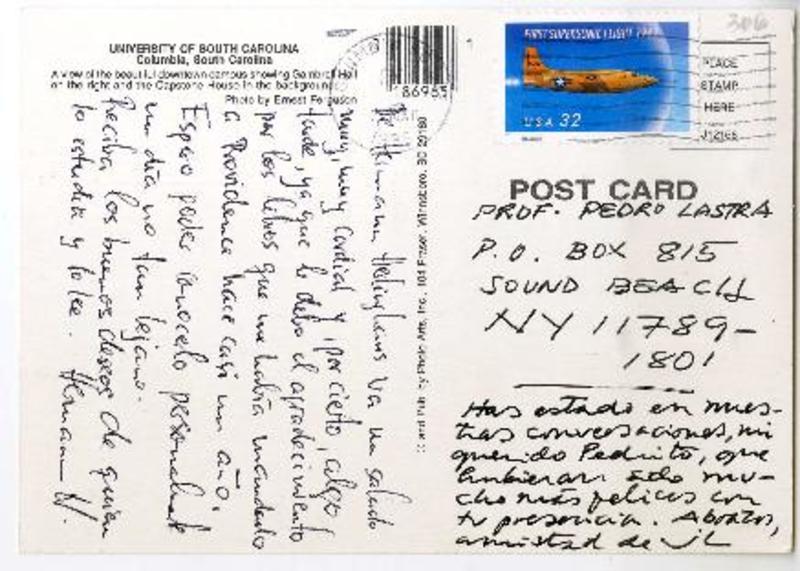 UNIVERSITY OF SOUTH CAROLINA
Columbia, South Carolina
A view of the beautiful downtown campus showing Gambrell Hall
on the right and the Capstone House in the background.
Photo by Ernest Ferguson
86965
FIRST SUPERSONIC FLIGHT 1947
USA 32
306
PLACE
STAMP
HERE
POST CARD
PROF. PEDRO LASTRA
P.O. BOX 815
SOUND BEACH
NY 11789-
1801
Has estado en nues-
tras conversaciones, mi
querido Pedrito, que
hubieran sido mu-
cho más felices con
tu presencia. Abrazos,
amistad de JL
De Hermann va un saludo
muy, muy cordial y, por cierto, algo
tarde, ya que le debo el agradecimiento
por los libros que me había mandado
a Providence hace casi un año.
Espero poder conocerlo personalmente
un día no tan lejano.
Reciba los buenos deseos de quien
lo estudia y lo lee. Hermann H.